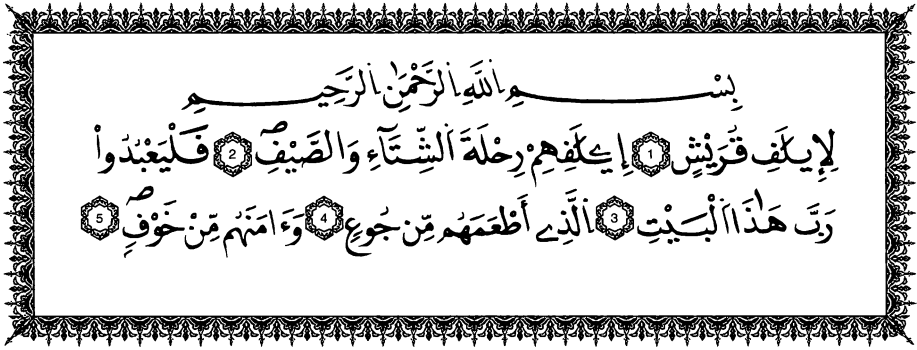 بِسْمِ اللَّهِ الرَّحْمَٰنِ الرَّحِيمِ
لِإِيلَٰفِ قُرَيْشٍ 1 إِۦلَٰفِهِمْ رِحْلَةَ الشِّتَآءِ وَالصَّيْفِۖ 2 فَلْيَعْبُدُواْ
رَبَّ هَٰذَا الْبَيْتِ 3 الَّذِےٓ أَطْعَمَهُم مِّن جُوعٍ 4 وَءَامَنَهُم مِّنْ خَوْفٍۖ 5